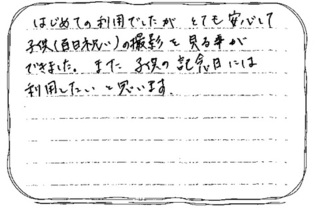 はじめての利用でしたが とても安心して
子供(百日祝い)の撮影を見る事が
できました。また 子供の記念日には
利用したいと思います。